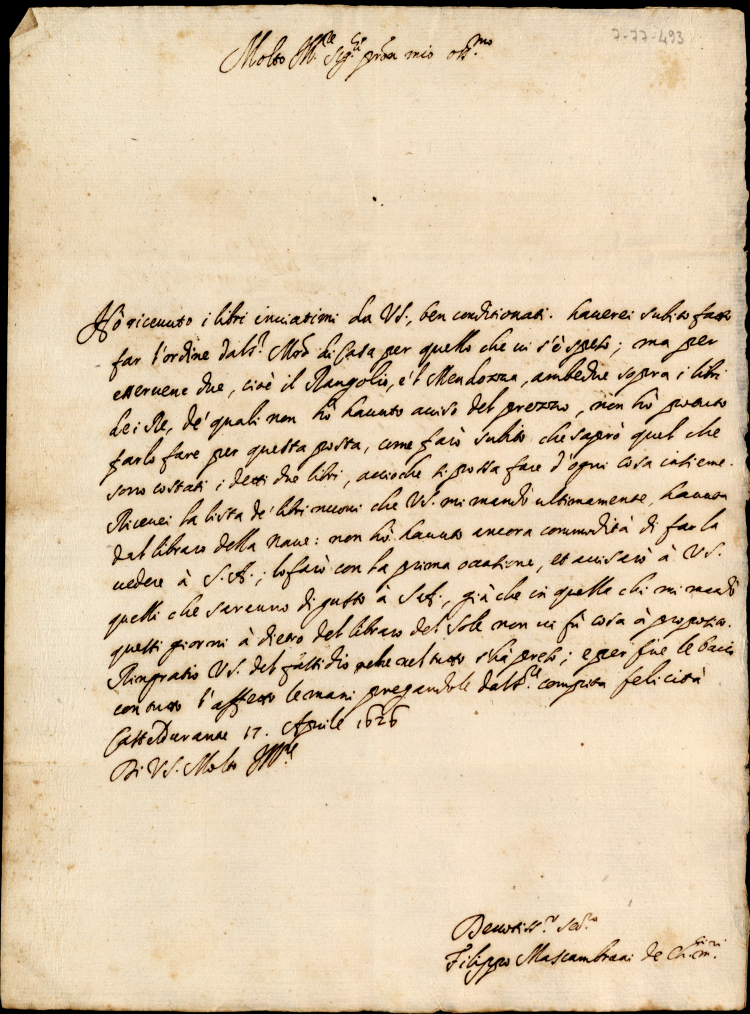 7-77-493
Molto Ill.re Sig.r pron mio oss.mo
Hò riceuuto i libri inuiatimi da VS., ben conditionati. hauerei subito fatto
far l'ordine dal s.r Mrõ di Casa per quello che ui s'è speso; ma per
esseruene due, cioè il Rangolio, e'l Mendozza, ambedue sopra i libri
dei Re, de' quali non hò hauuto auiso del prezzo, non hò potuto
farlo fare per questa posta, come farò subito che saprò quel che
sono costati i detti due libri, accioche si possa fare d'ogni cosa insieme.
Riceuei la lista de' libri nuoui che VS. mi mandò ultimamente, hauuta
dal libraro della Naue: non hò hauuto ancora commodità di farla
uedere à S.A.; lo farò con la prima occasione, et auisarò à VS.
quelli che saranno di gusto à S.A., già che in quella che mi mandò
questi giorni à dietro del libraro del Sole non ui fù cosa à proposito.
Ringratio VS. del fastidio che nel tutto s'hà preso; e per fine le bacio
con tutto l'affetto le mani pregandole dal S.re compita felicità
CastelDurante 17. Aprile 1626
Di VS. Molto Ill.re
Deuotiss.o Ser.re
Filippo Mascambruni de